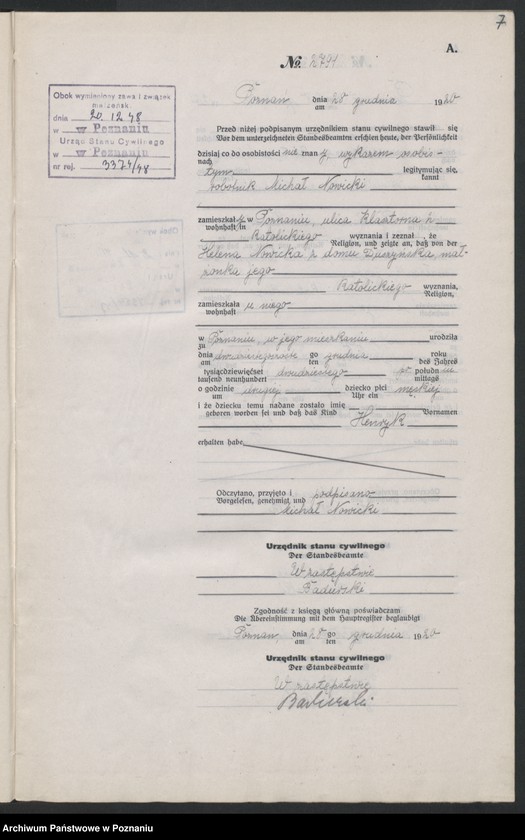 7
A.
No. 2794
Obok wymieniony zawarł związek
małżeńsk.
dnia 20. 12 48
w Poznaniu
Urząd Stanu Cywilnego
w Poznaniu
nr rej. 3374/48
Poznan dnia 28 grudnia 1920
am
Przed niżej podpisanym urzędnikiem stanu cywilnego stawił się
Vor dem unterzeichneten Standesbeamten erschien heute, der Persönlichkeit
dzisiaj co do osobistości nie znan y, wykazem osobis-
nach
tym legitymując się,
kannt
robotnik Michał Nowicki
zamieszkał y w Poznaniu, ulica Klasztorna
wohnhaft in
katolickiego wyznania i zeznał, że
Religion, und zeigte an, daß von der
Helena Nowicka z domu mał-
żonka jego
katolickiego wyznania,
Religion,
zamieszkała u niego
wohnhaft
w Poznaniu, w jego mieszkaniu urodziła
zu
dnia go grudnia roku
am ten des Jahres
tysiącdziewięćset dwudziestego po połudn iu
tausend neunhundert mittags
o godzinie drugiej dziecko płci męskiej
um Uhr ein
i że dziecku temu nadane zostało imię
geboren worden sei und daß das Kind Henryk Vornamen
erhalten habe.
Odczytano, przyjęto i podpisano
Vorgelesen, genehmigt und
Michał Nowicki
Urzędnik stanu cywilnego
Der Standesbeamte
W zastępstwie
Zgodność z księgą główną poświadczam
Die Übereinstimmung mit dem Hauptregister beglaubigt
Poznan, dnia 28 go grudnia 1920
am ten
Urzędnik stanu cywilnego
Der Standesbeamte
W zastępstwie
Archiwum Państwowe w Poznaniu